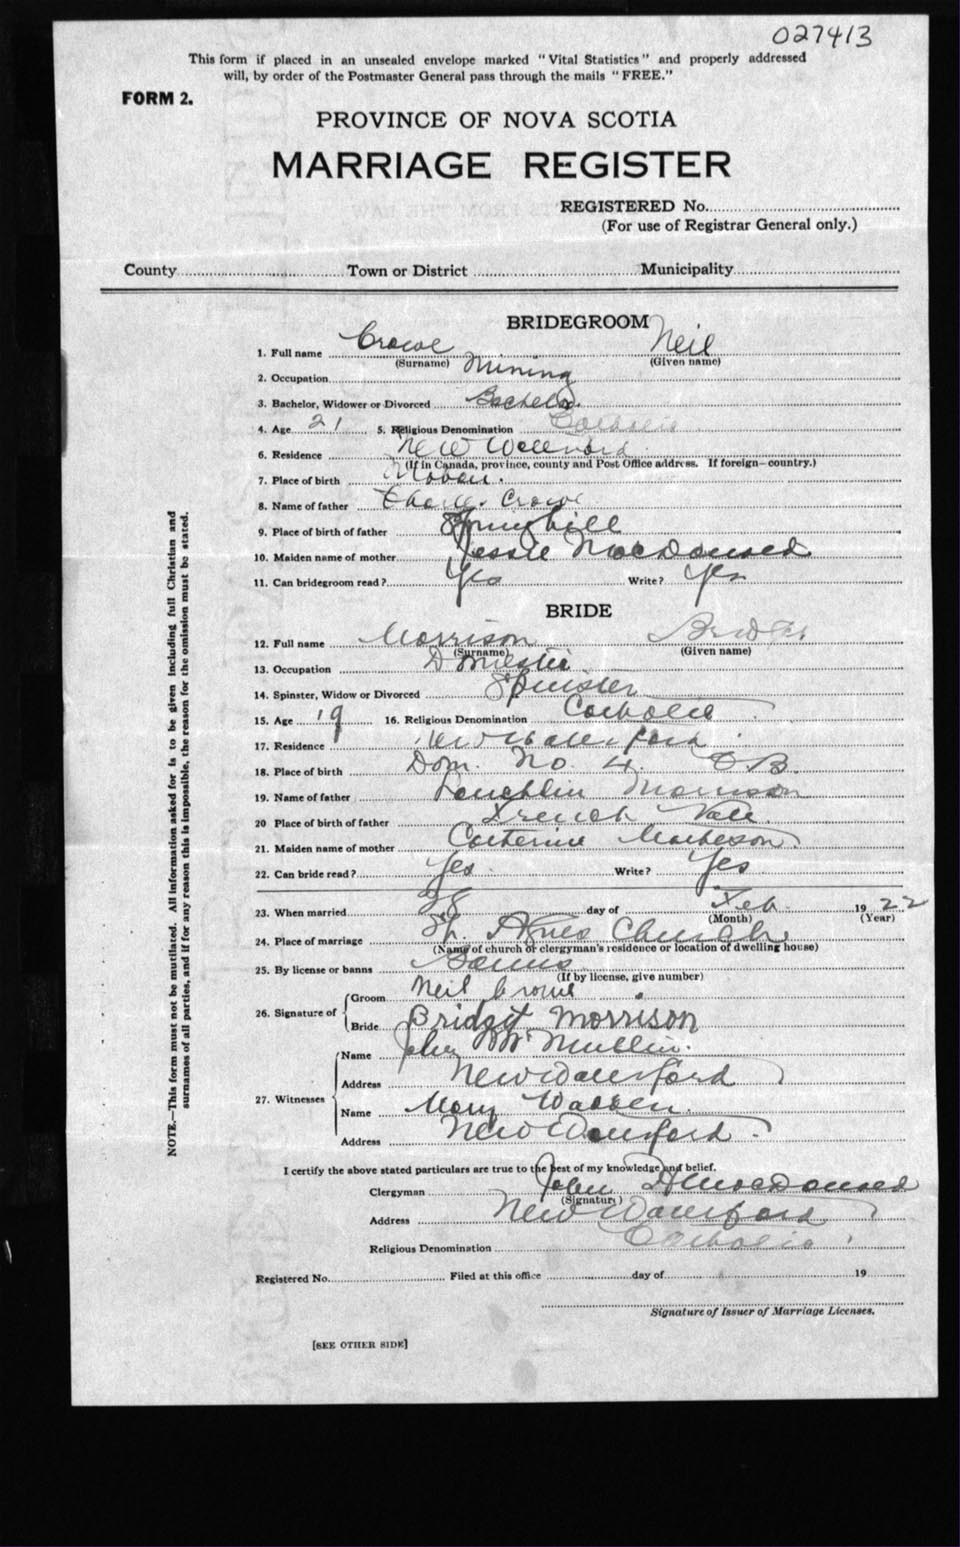 027413
This form if placed in an unsealed envelope marked "Vital Statistics" and properly addressed
will, by order of the Postmaster General pass through the mails "FREE."
FORM 2.
PROVINCE OF NOVA SCOTIA
MARRIAGE REGISTER
REGISTERED No.
(For use of Registrar General only.)
County Town or District Municipality
BRIDEGROOM
1. Full name Crowe Neil
(Surname) (Given name)
2. Occupation Mining
3. Bachelor, Widower or Divorced Bachelor
4. Age 21 5. Religious Denomination Catholic
6. Residence New Waterford
(If in Canada, province, county and Post Office address. If foreign—country.)
7. Place of birth Mabou.
8. Name of father Charles Crowe
9. Place of birth of father Springhill
10. Maiden name of mother Jessie MacDonald
11. Can bridegroom read? Yes Write? Yes
BRIDE
12. Full name Morrison
(Surname) (Given name)
13. Occupation Domestic
14. Spinster, Widow or Divorced Spinster
15. Age 19 16. Religious Denomination Catholic
17. Residence New Waterford
18. Place of birth Dom. No. 4. C.B.
19. Name of father Lauchlin Morrison
20 Place of birth of father French Vale
21. Maiden name of mother Catherine Matheson
22. Can bride read? Yes Write? Yes
23. When married 28 day of Feb. 1922
(Month) (Year)
24. Place of marriage St. Agnes Church
(Name of church or clergyman's residence or location of dwelling house)
25. By license or banns Banns
(If by license, give number)
26. Signature of
Groom Neil Crowe
Bride Bridgit Morrison
27. Witnesses
Name John McMullin.
Address New Waterford
Name Mary Wadden.
Address New Waterford
I certify the above stated particulars are true to the best of my knowledge and belief.
Clergyman John H MacDonald
(Signature)
Address New Waterford
Religious Denomination Catholic
Registered No. Filed at this office day of 19
Signature of Issuer of Marriage Licenses.
[SEE OTHER SIDE]
NOTE.—This form must not be mutilated. All information asked for is to be given including full Christian and
surnames of all parties, and if for any reason this is impossible, the reason for the omission must be stated.